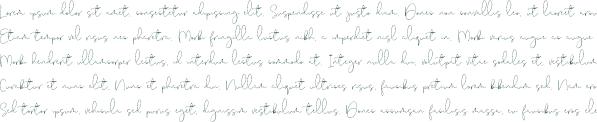 Lorem ipsum dolor sit amet, consectetur adipiscing elit. Suspendisse at justo diam. Donec non convallis leo, at laoreet arcu
Etiam tempor vel risus nec pharetra. Morbi fringilla luctus nibh, a imperdiet nisl aliquet in. Morbi varius augue ac augue
Morbi hendrerit ullamcorper lectus, id interdum lectus commodo at. Integer nulla dui, volutpat vitae sodales et, vestibulum
Curabitur et nunc elit. Nunc et pharetra dui. Nullam aliquet ultrices risus, faucibus pretium lorem bibendum sed. Nam eros
Sed tortor ipsum, vehicula sed purus eget, dignissim vestibulum tellus. Donec accumsan facilisis massa, eu faucibus eros